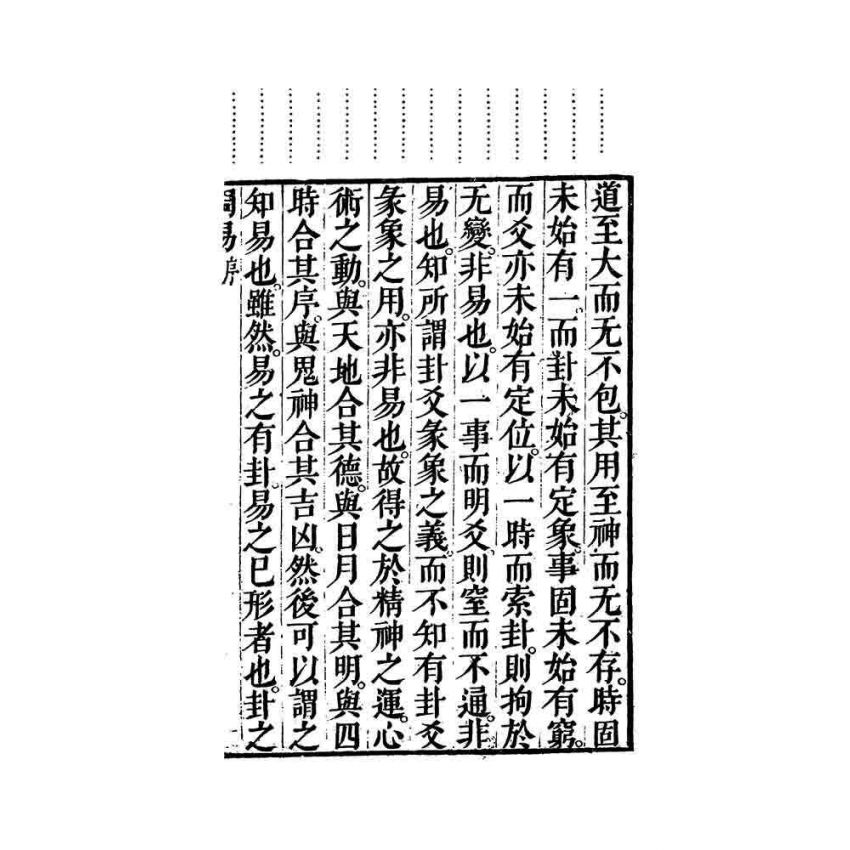 道至大而无不包。其用至神而无不存。時固
未始有一。而卦未始有定象。事固未始有窮。
而爻亦未始有定位。以一時而索卦。則拘於
无變。非易也。以一事而明爻。則窒而不通。非
易也。知所謂卦爻彖象之義。而不知有卦爻
彖象之用。亦非易也。故得之於精神之運。心
術之動。與天地合其德。與日月合其明。與四
時合其序。與鬼神合其吉凶。然後可以謂之
知易也。雖然。易之有卦。易之已形者也。卦之
周易序